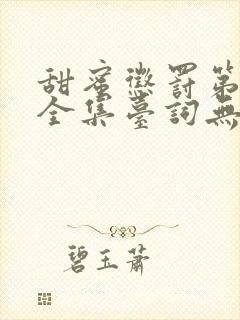 甜蜜懲罰第
全集臺詞無
碧玉蕭